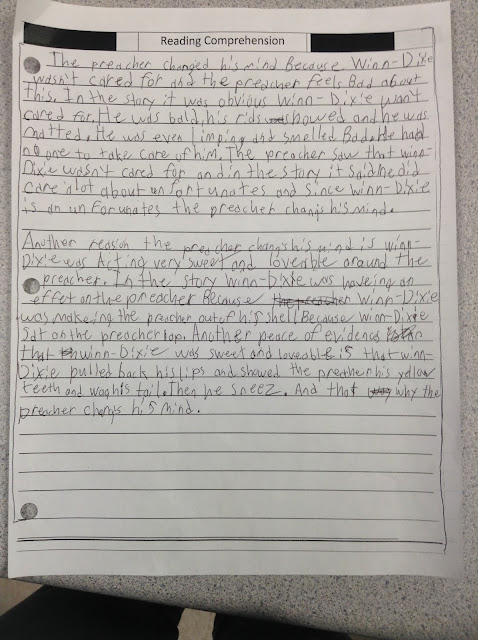 Reading Comprehension
The preacher changed his mind Because Winn-Dixie
wasn't cared for and the preacher feels Bad about
this. In the story it was obvious Winn-Dixie wan't
cared for. He was bald, his rids showed and he was
matted. He was even limping and smelled Bad. He had
no one to take care of him. The preacher saw that winn-
Dixie wasn't cared for and in the story it said he did
care alot about unfortunates and since Winn-Dixie
is an unfortunates the preacher changs his mind.
Another reason the preacher changs his mind is winn-
Dixie was Acting very sweet and loveable around the
preacher. In the story Winn-Dixie was haveing an
effect on the preacher Because Winn-Dixie
was makeing the preacher out of his shell Because Winn-Dixie
Sat on the preacher lap. Another peace of evidence
that winn-Dixie was sweet and loveable is that winn-
Dixie pulled back his lips and showed the his yellow
teeth and wag his tail. Then he sneez. And that why the
preacher changs his mind.